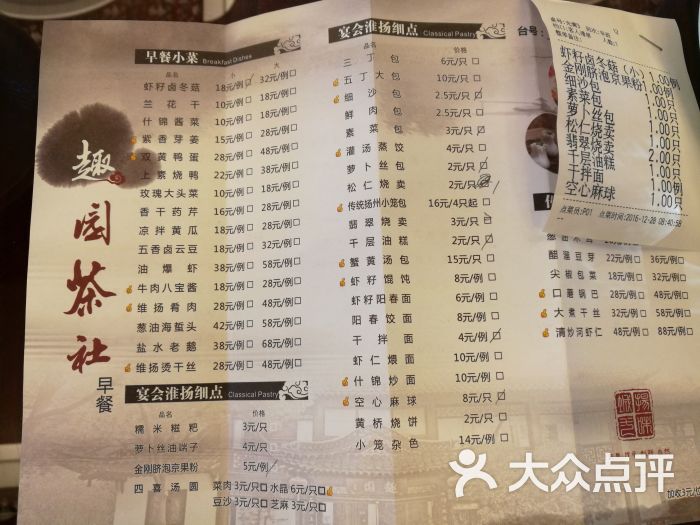 趣园茶社
早餐
早餐小菜 Breakfast Dishes
品名 小 大
虾籽卤冬菇 18元/例 32元/例
兰花干 10元/例 18元/例
什锦酱菜 10元/例 18元/例
紫香芽姜 15元/例 28元/例
双黄鸭蛋 28元/例 48元/例
上素烧鸭 22元/例 38元/例
玫瑰大头菜 10元/例 18元/例
香干药芹 16元/例 28元/例
凉拌黄瓜 18元/例 32元/例
五香卤云豆 18元/例 32元/例
油爆虾 38元/例 58元/例
牛肉八宝酱 18元/例 28元/例
维扬肴肉 28元/例 48元/例
葱油海蜇头 42元/例 68元/例
盐水老鹅 38元/例 68元/例
维扬烫干丝 28元/例 48元/例
宴会淮扬细点 Classical Pastry
品名 价格
糯米糍粑 3元/只
萝卜丝油端子 4元/只
金刚脐泡京果粉 5元/例
四喜汤圆 菜肉 3元/只 水晶 6元/只
豆沙 3元/只 芝麻 3元/只
宴会淮扬细点 Classical Pastry
品名 价格
三丁包 6元/只
五丁大包 10元/只
细沙包 2.5元/只
鲜肉包 2.5元/只
素菜包 3元/只
灌汤蒸饺 4元/只
萝卜丝包 2元/只
松仁烧卖 2元/只
传统扬州小笼包 16元/4只起
翡翠烧卖 3元/只
千层油糕 2元/只
蟹黄汤包 15元/只
虾籽馄饨 8元/例
虾籽阳春面 6元/例
阳春饺面 8元/例
干拌面 4元/例
虾仁煨面 10元/例
什锦炒面 10元/例
空心麻球 8元/只
黄桥烧饼 2元/只
小笼杂色 14元/例
台号:
22元/例 36元/例
尖椒包菜 18元/例 32元/例
口蘑锅巴 28元/例 48元/例
大煮干丝 38元/例 68元/例
清炒河虾仁 48元/例 88元/例
虾籽卤冬菇(小) 1.00例
金刚脐泡京果粉 1.00例
细沙包 1.00只
素菜包 1.00只
萝卜丝包 1.00只
松仁烧卖 1.00只
翡翠烧卖 1.00只
千层油糕 2.00只
干拌面 1.00例
空心麻球 1.00只
点菜员:P01 点菜时间:2016-12-28 08:40:58
加收3元/位
大众点评